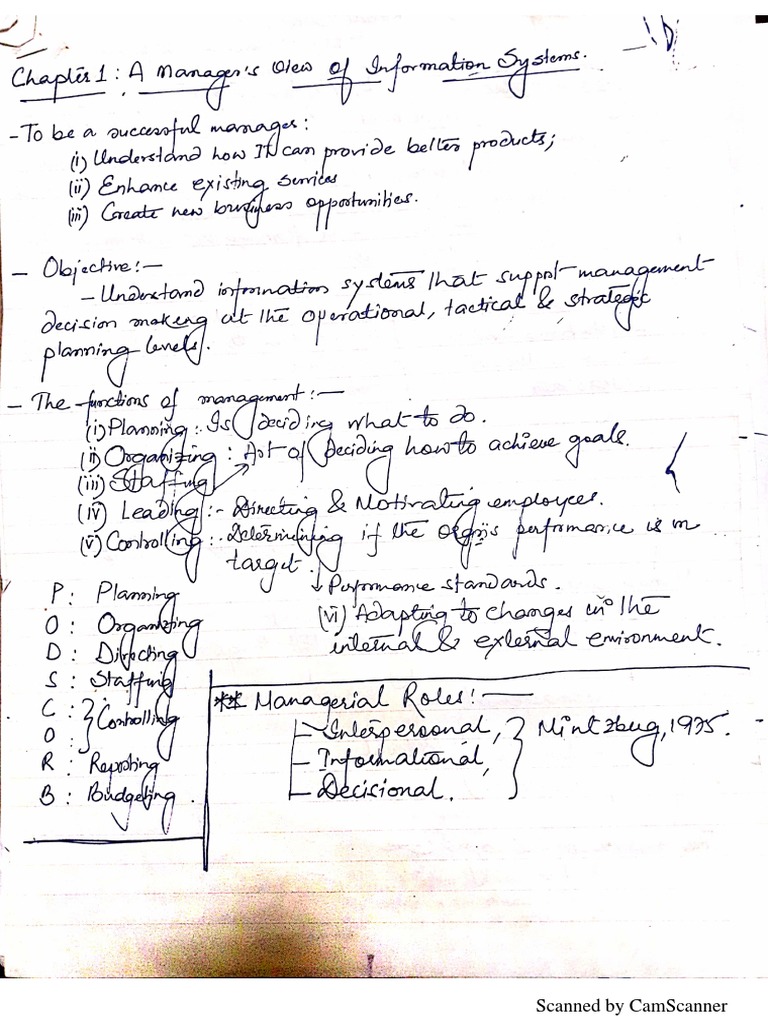 Chapter 1: A Manager's View of Information Systems.
- To be a successful manager:
(i) Understand how IT can provide better products;
(ii) Enhance existing services
(iii) Create new business opportunities.
- Objective:-
- Understand information systems that support management
decision making at the operational, tactical & strategic
planning levels.
- The functions of management:-
(i) Planning: Is deciding what to do.
(ii) Organizing: Art of deciding how to achieve goals.
(iii) Staffing
(iv) Leading:- Directing & Motivating employees.
(v) Controlling:- Determining if the orgn's performance is on
target.
↓ Performance standards.
(vi) Adapting to changes in the
internal & external environment.
P: Planning
O: Organizing
D: Directing
S: Staffing
C: } Controlling
O:
R: Reporting
B: Budgeting.
** Managerial Roles:-
- Interpersonal, } Mintzbug, 1975.
- Informational,
- Decisional.
Scanned by CamScanner